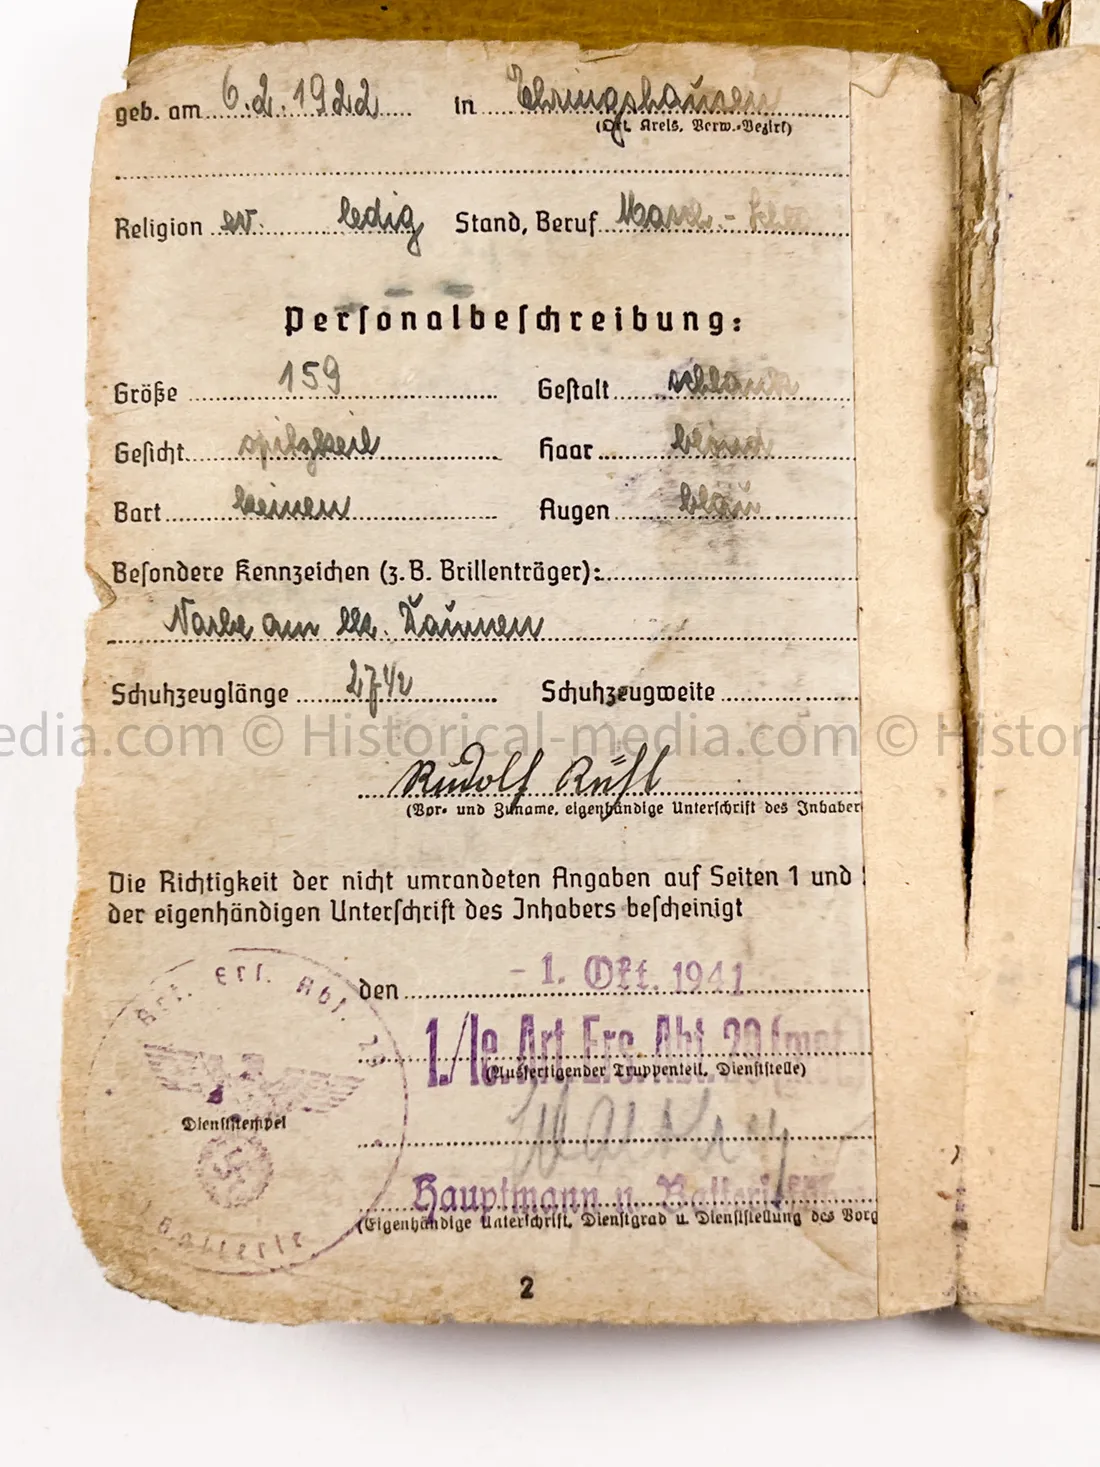 geb. am 6.2.1922 in Ehringshausen
(Ort, Kreis, Verw.-Bezirk)
Religion ev. ledig Stand, Beruf Masch.-
Personalbeſchreibung:
Größe 159 Geſtalt schlank
Geſicht spitzkeil Haar blond
Bart keinen Augen blau
Beſondere Kennzeichen (z. B. Brillenträger):
Narbe am lk. Daumen
Schuhzeuglänge 27½ Schuhzeugweite
edia.com © Historical-media.com © Histor
Rudolf Rühl
(Vor- und Zuname, eigenhändige Unterſchrift des Inhaber
Die Richtigkeit der nicht umrandeten Angaben auf Seiten 1 und
der eigenhändigen Unterſchrift des Inhabers beſcheinigt
den - 1. Okt. 1941
1./le. Art. Ers. Abt. 29 (mot
(Ausfertigender Truppenteil, Dienſtſtelle)
Dienſtſtempel
Hauptmann u. Batterie
(Eigenhändige Unterſchrift, Dienſtgrad u. Dienſtſtellung des Vorg
2